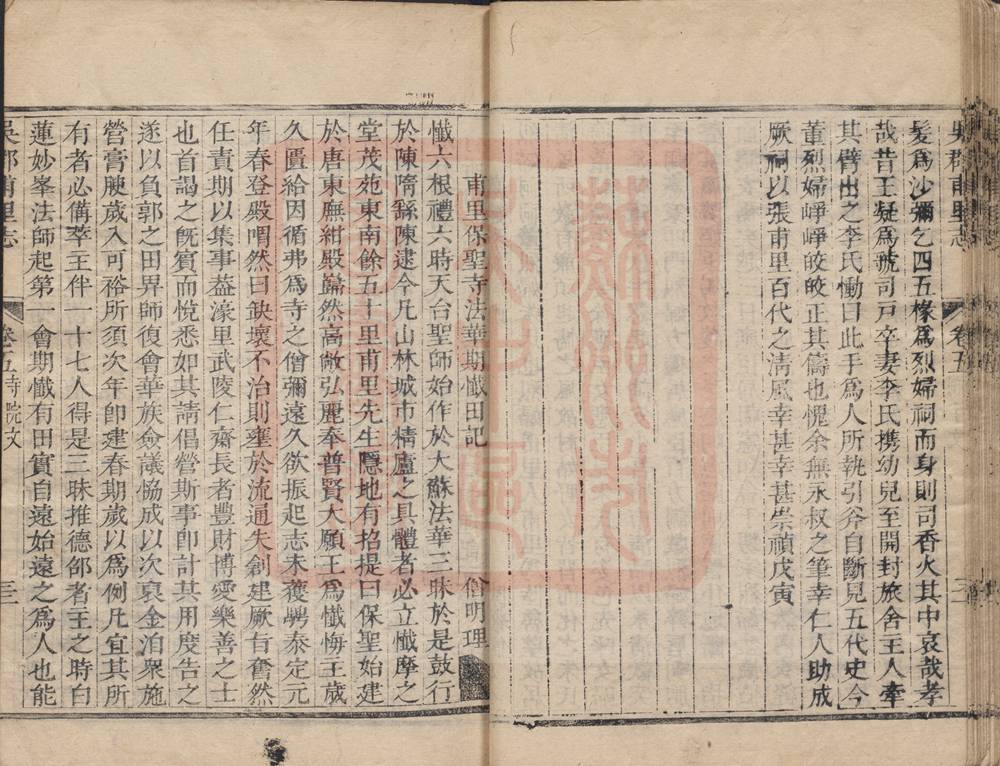 吳郡甫里志 卷五 三
髮爲沙彌乞四五椽爲烈婦祠而身則司香火其中哀哉孝
哉昔王凝爲虢司戸卒妻李氏携幼兒至開封旅舍主人牽
其臂出之李氏慟曰此手爲人所執引斧自斷見五代史今
董烈婦崢崢皎皎正其儔也愧余無永叔之筆幸仁人助成
厥祠以張甫里百代之淸風幸甚幸甚崇禎戊寅
甫里保聖寺法華期懺田記 僧明理
懺六根禮六時天台聖師始作於大蘇法華三昧於是鼓行
於陳隋繇陳逮今凡山林城市精廬之具體者必立懺摩之
堂茂苑東南餘五十里甫里先生隱地有招提曰保聖始建
於唐東廡紺殿巋然高敞弘麗奉普賢大願王爲懺悔主歲
久匱給因循弗爲寺之僧彌遠久欲振起志未蒦騁泰定元
年春登殿喟然曰缺壞不治則壅於流通失創建厥旨奮然
任責期以集事益濠里武陵仁齋長者豐財博愛樂善之士
也首謁之旣賓而悅悉如其請倡營斯事卽計其用度告之
遂以負郭之田畀師復會華族僉議恊成以次裒金洎衆施
營膏腴歲入可裕所須次年卽建春期歲以爲例凡宜其所
有者必偹萃主伴一十七人得是三昧推德郃者主之時白
蓮妙峯法師起第一會期懺有田實自遠始遠之爲人也能
吳郡甫里志 卷五 寺院文 三